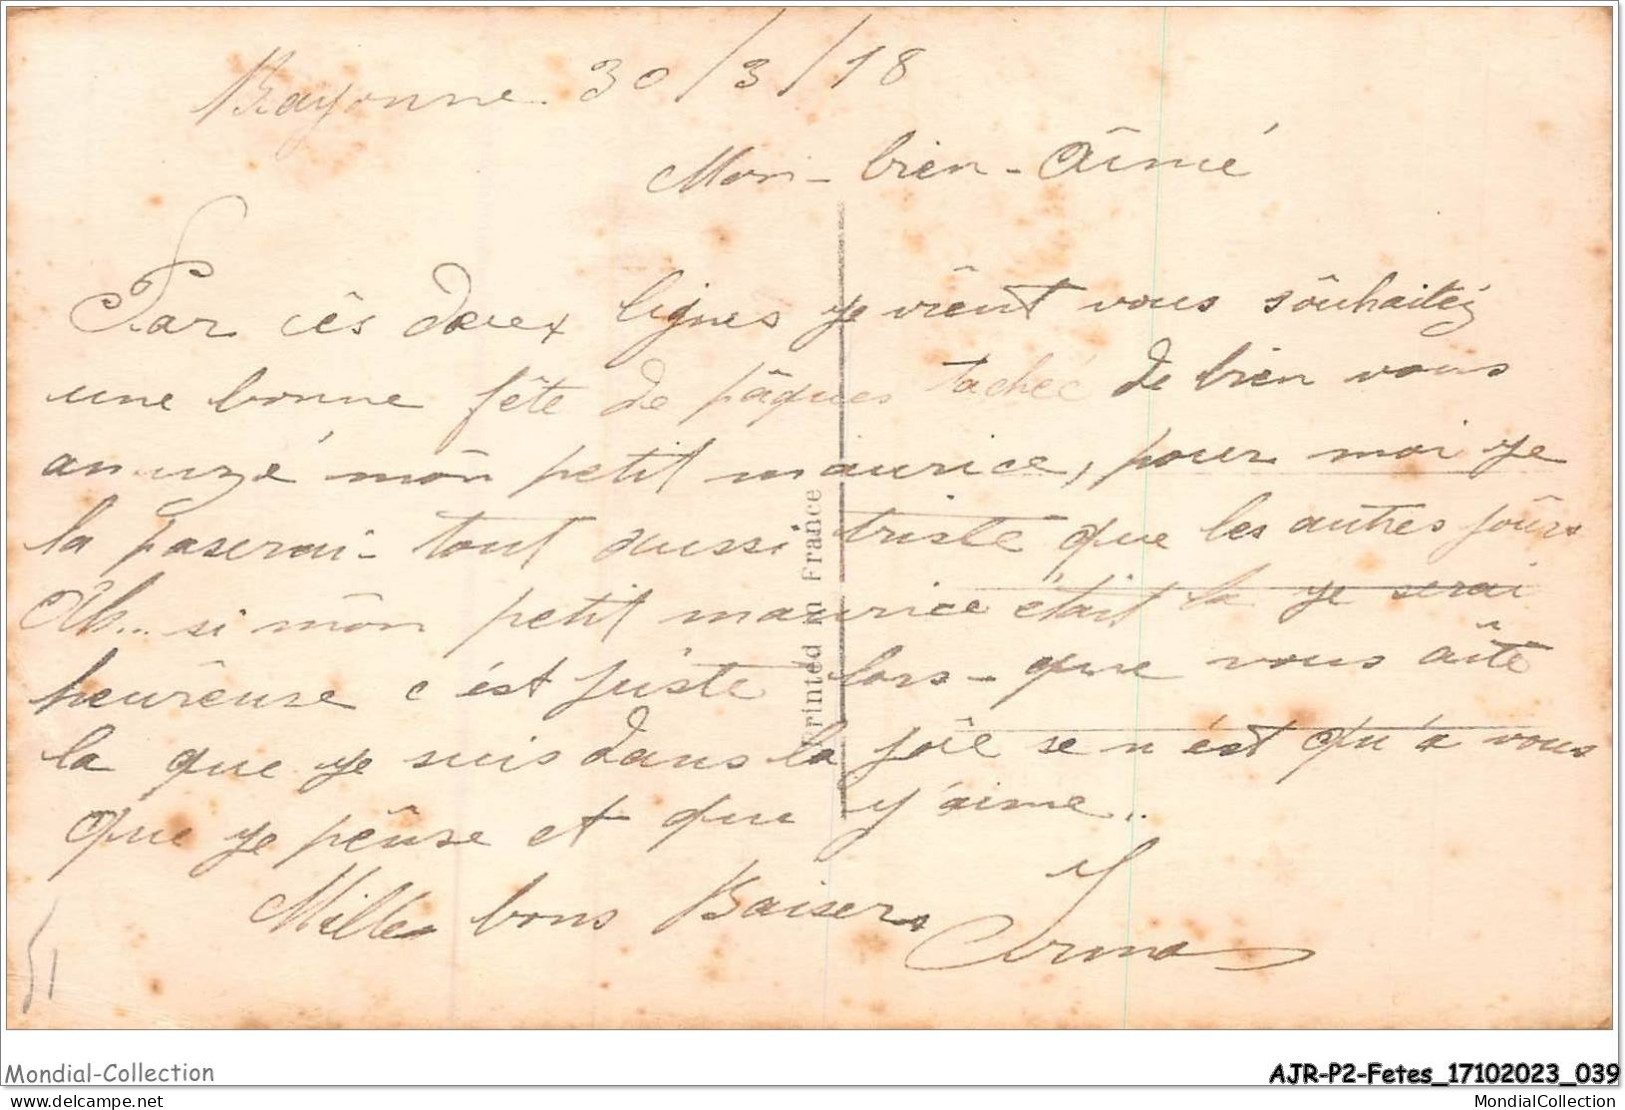 Bayonne 30/3/18
Mon-bien-Aîmé
Par cês deux lignes je vient vous sôuhaitéz
une bonne fête de pâques tacheé de bien vous
amuzé môn petit maurice, pour moi je
la paserai-tout aussi triste que les autres jôurs
Ah... si môn petit maurice était la je serai
heurêuse c'ést juste lors-que vous aîte
la que je suis dans la jôie se n'ést qu'a vous
que je pênse et que j'aime..
Milles bons Baisers Irma
Printed in France
51
Mondial-Collection
AJR-P2-Fetes_17102023_039
delcampe.net
MondialCollection